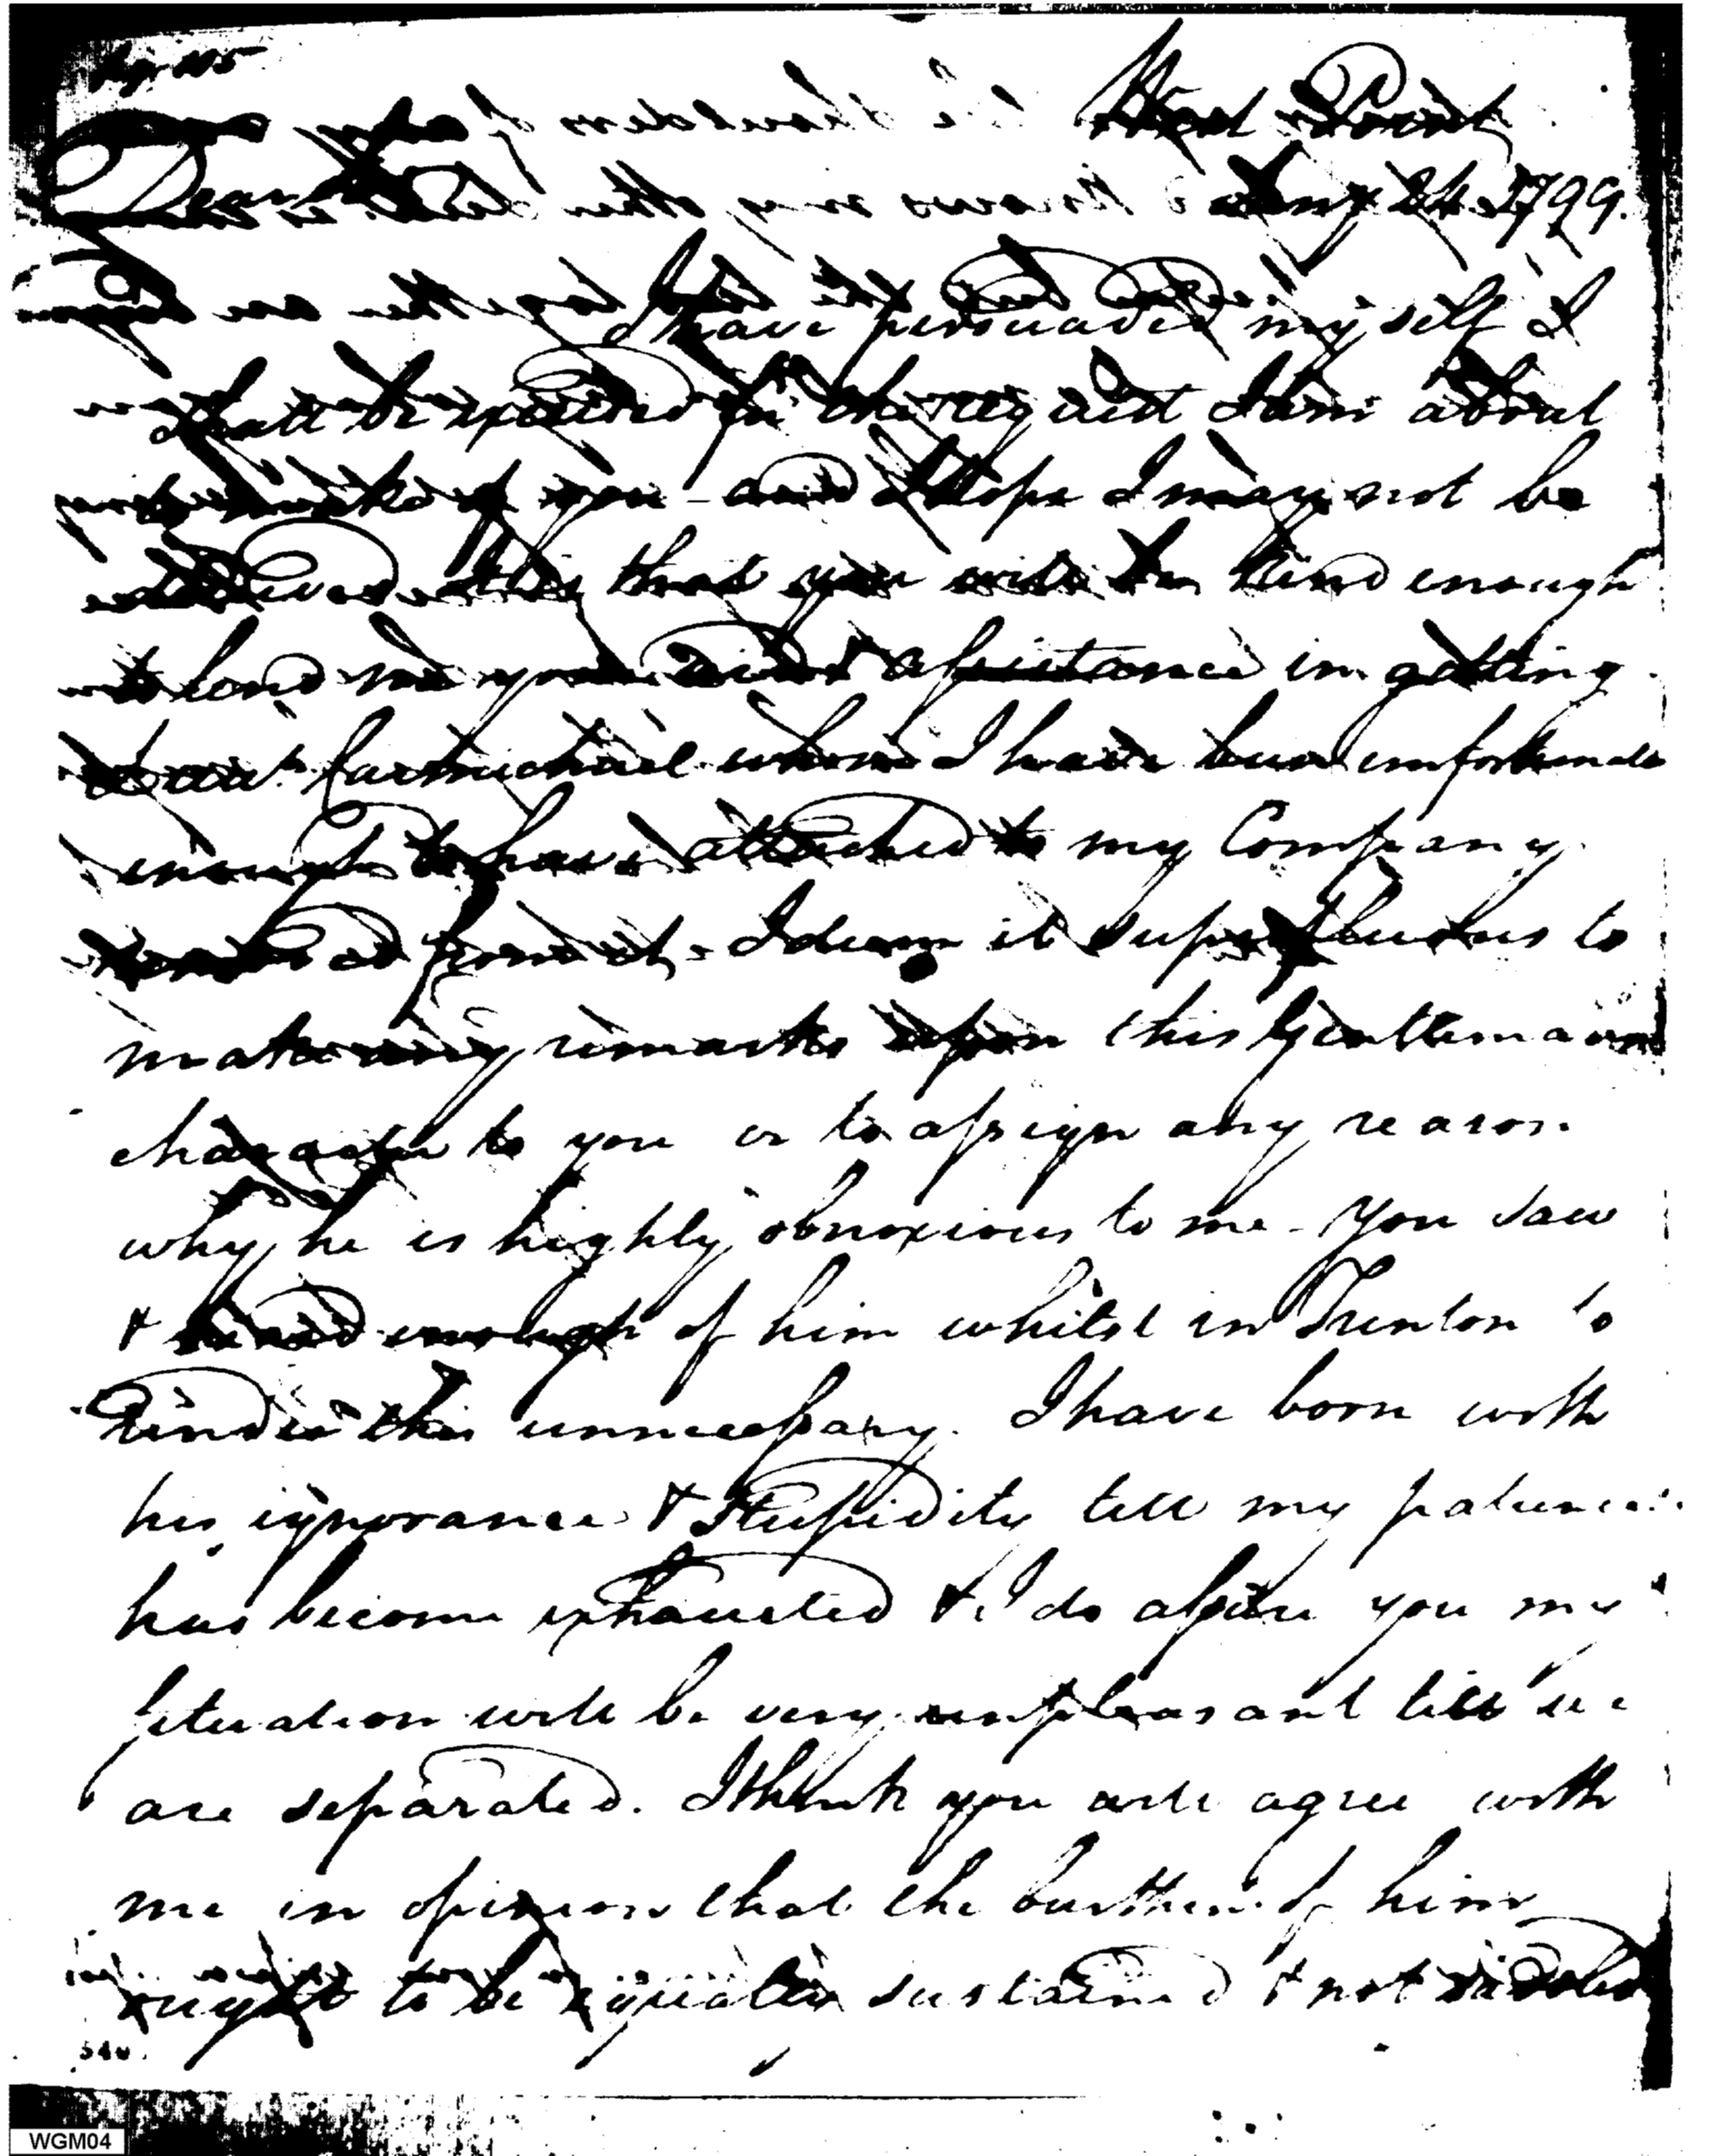 West Point
Augt 24. 1799.
Dear
I have persuaded myself I
shall be excused in the request I am about
to make of you - and I hope I may not be
in this that you will be kind enough
to lend me your assistance in getting
Carmichael whom I have been unfortunate
enough to have attached to my Company
from it - I deem it superfluous to
make any remarks upon this Gentlemans
character to you or to assign any reason
why he is highly obnoxious to me - You saw
& heard enough of him whilst in Trenton to
render this unnecessary. I have born with
his ignorance & Stupidity till my patience
has become exhausted & I do assure you my
situation will be very unpleasant till we
are separated. I think you will agree with
me in opinion that the burthen of him
ought to be equally sustained & not saddled
540.
WGM04